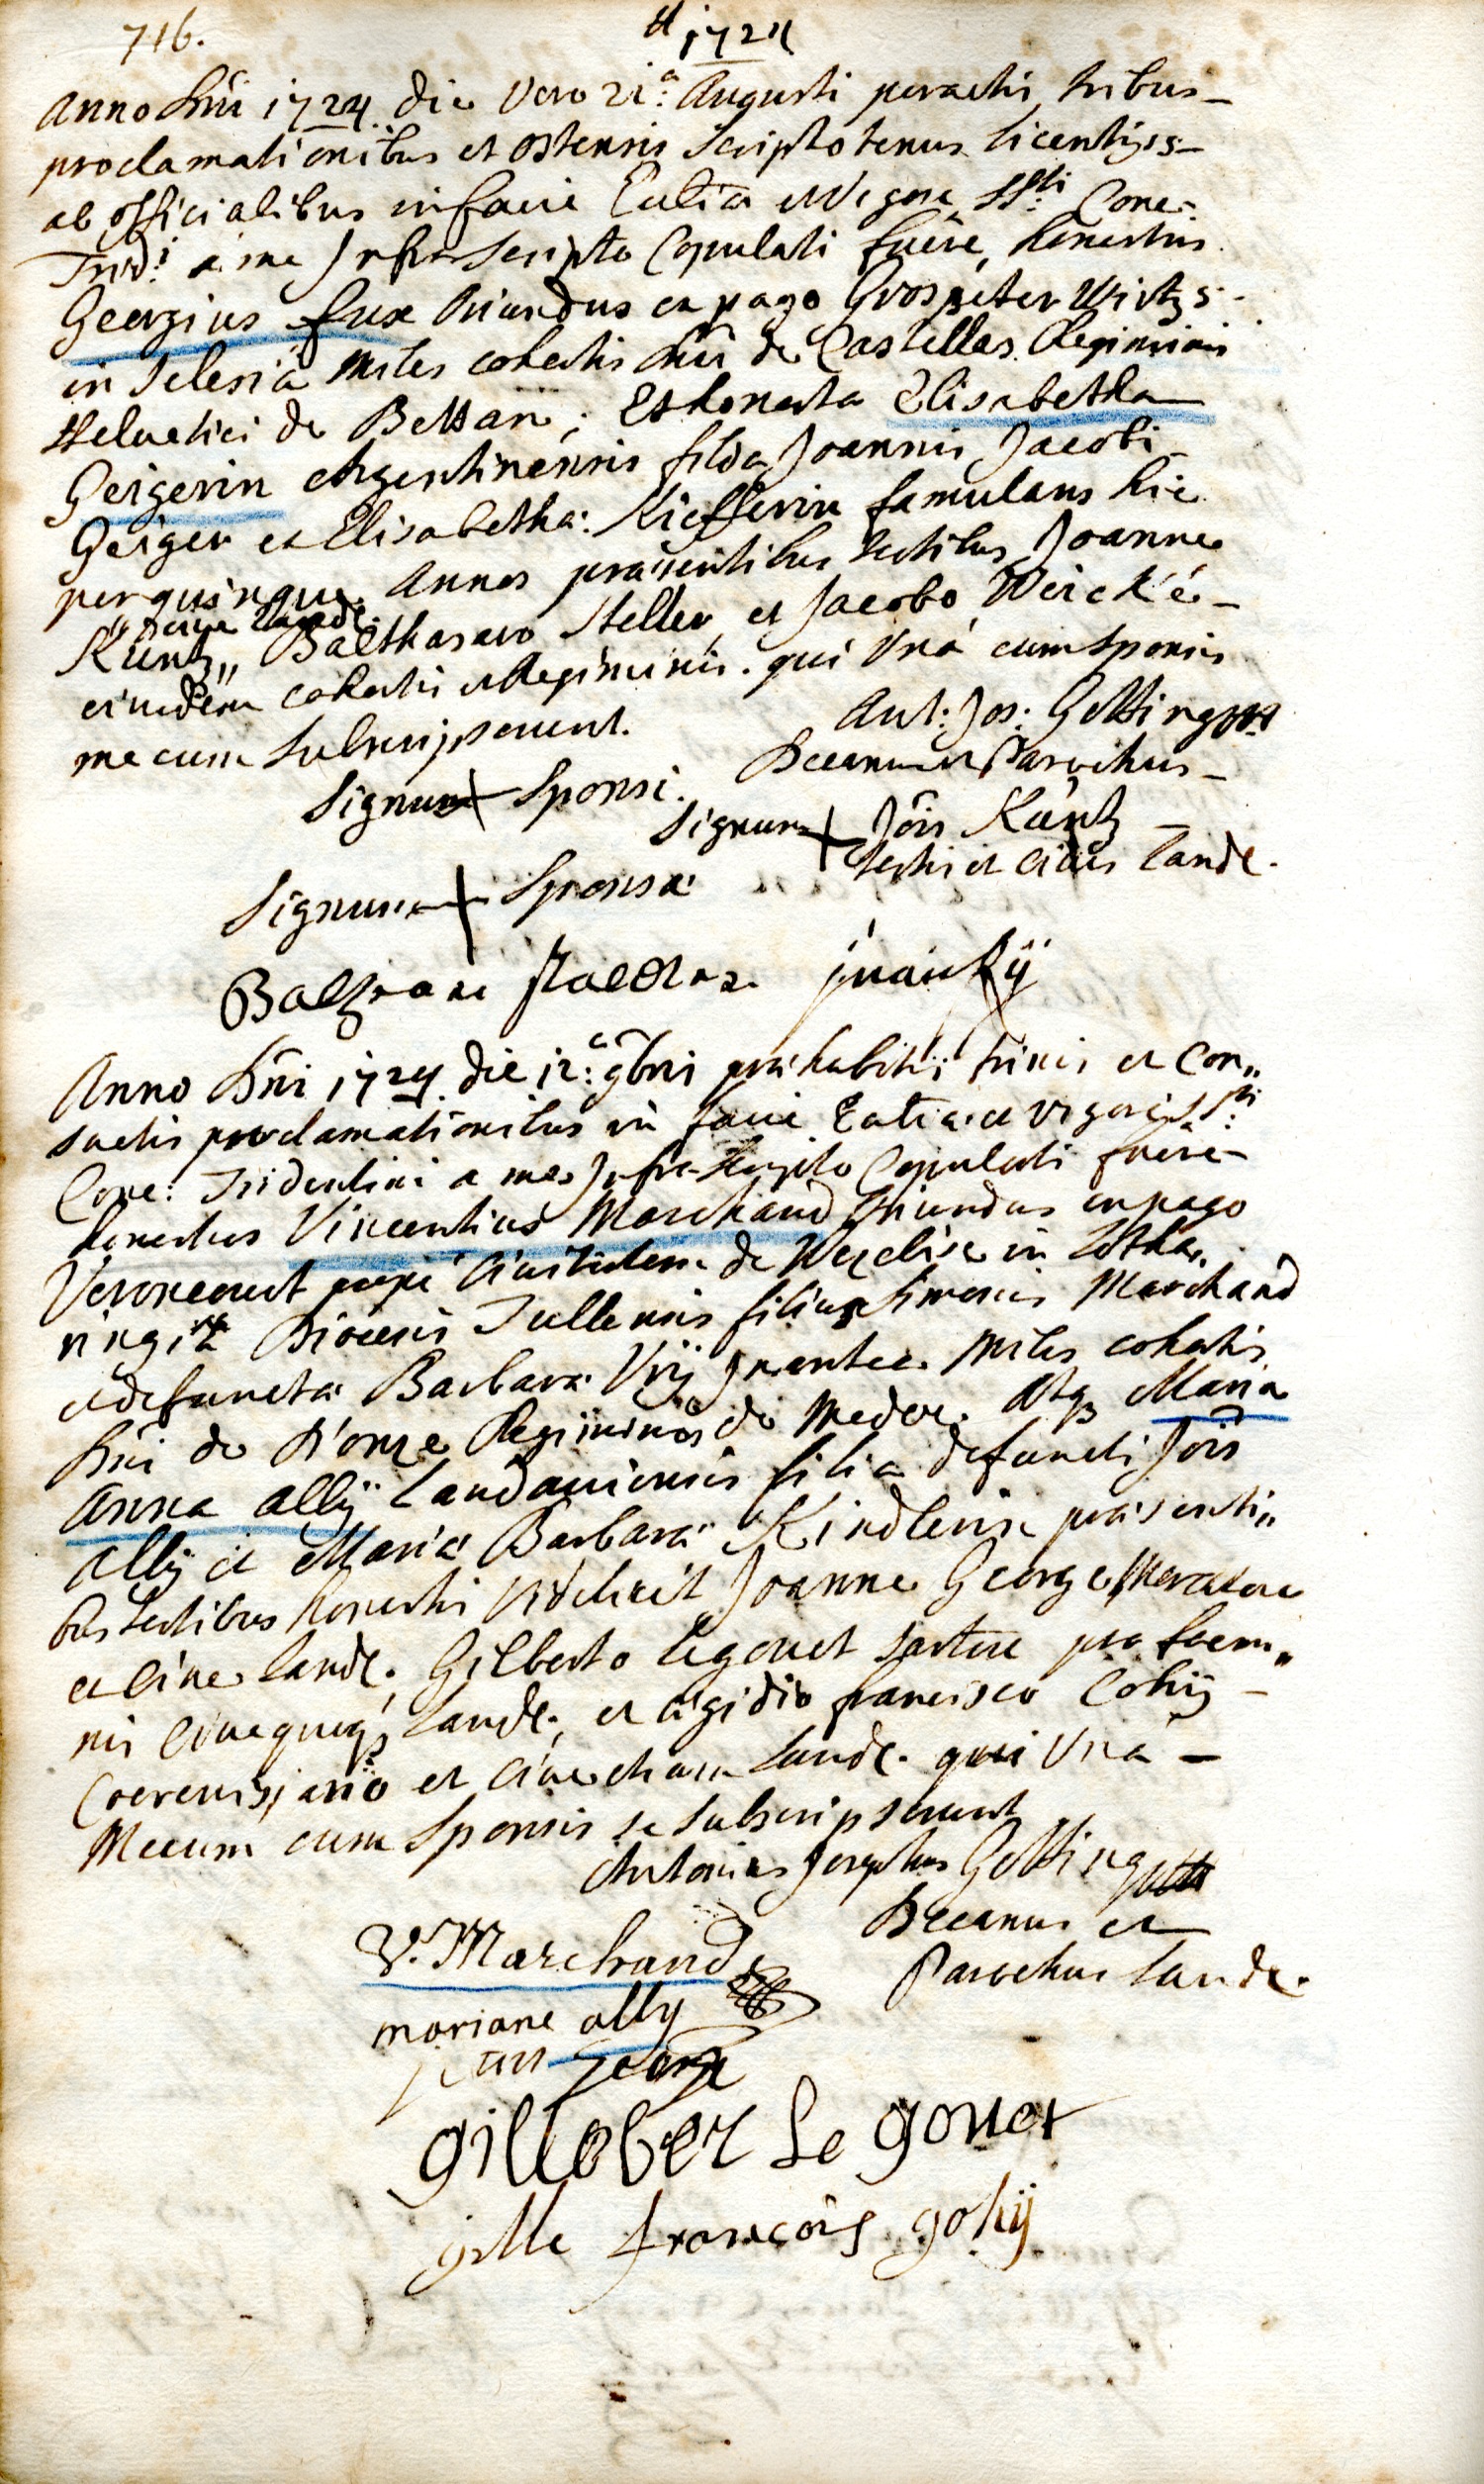 716.
1724
Anno Dni 1724. die vero 21.a Augusti peractis tribus
proclamationibus et ostensis scripto tenus licentijs
ab officialibus in facie Eccliae et vigore SSti Conc:
Trid:i a me Infra scripto Copulati fuere, honestus
Georgius fux oriundus ex pago Grospeterwitz
in Silesia miles cohortis dni de Castellas Regiminis
Helvetici de Bettan; Et honesta Elisabetha
Geigerin Argentinensis filia Joannis Jacobi
Geiger et Elisabethae Kiefferin famulans hic
per quinque Annos praesentibus testibus Joanne
Küntz, Balthasaro Steller, et Jacobo Weické
eiusdem cohortis et Regiminis. qui Una cum sponsis
mecum subscripserunt.
Ant: Jos: Götting
Decanus et Parochus
Signum + Sponsi.
Signum + Jois Küntz
testis et civis Land.
Signum + Sponsae
Anno Dni 1724. die 12.a 9bris praehabitis trinis et con„
suetis proclamationibus in facie Eccliae et vigore SSti
Conc: Tridentini a me Infra scripto Copulati fuere
honestus Vincentius Marchand Oriundus ex pago
Veroncourt prope Civitatem de Wezelise in Lotha„
ringia Diocesis Tullensis filius Simonis Marchand
et defunctae Barbarae miles cohortis
Dni de D'onze Regiminis de Medoc. Atq Maria
Anna Ally Landaviensis filia defuncti Jois
Ally et Mariae Barbarae Kindlerin praesenti„
bus testibus honestis videlicet Joanne George Mercatore
et cive Land. Gilberto legouet sartore pro foemi„
nis Civequeq Land., et aegidio francisco Cohÿ
Cerevisiario et cive etiam Land. qui Una
Mecum cum Sponsis se subscripserunt
Antonius Josephus Götting
Decanus et
Parochus Land.
V. Marchand
mariane ally
jean George
gillober Le gouet
gille françois gohÿ